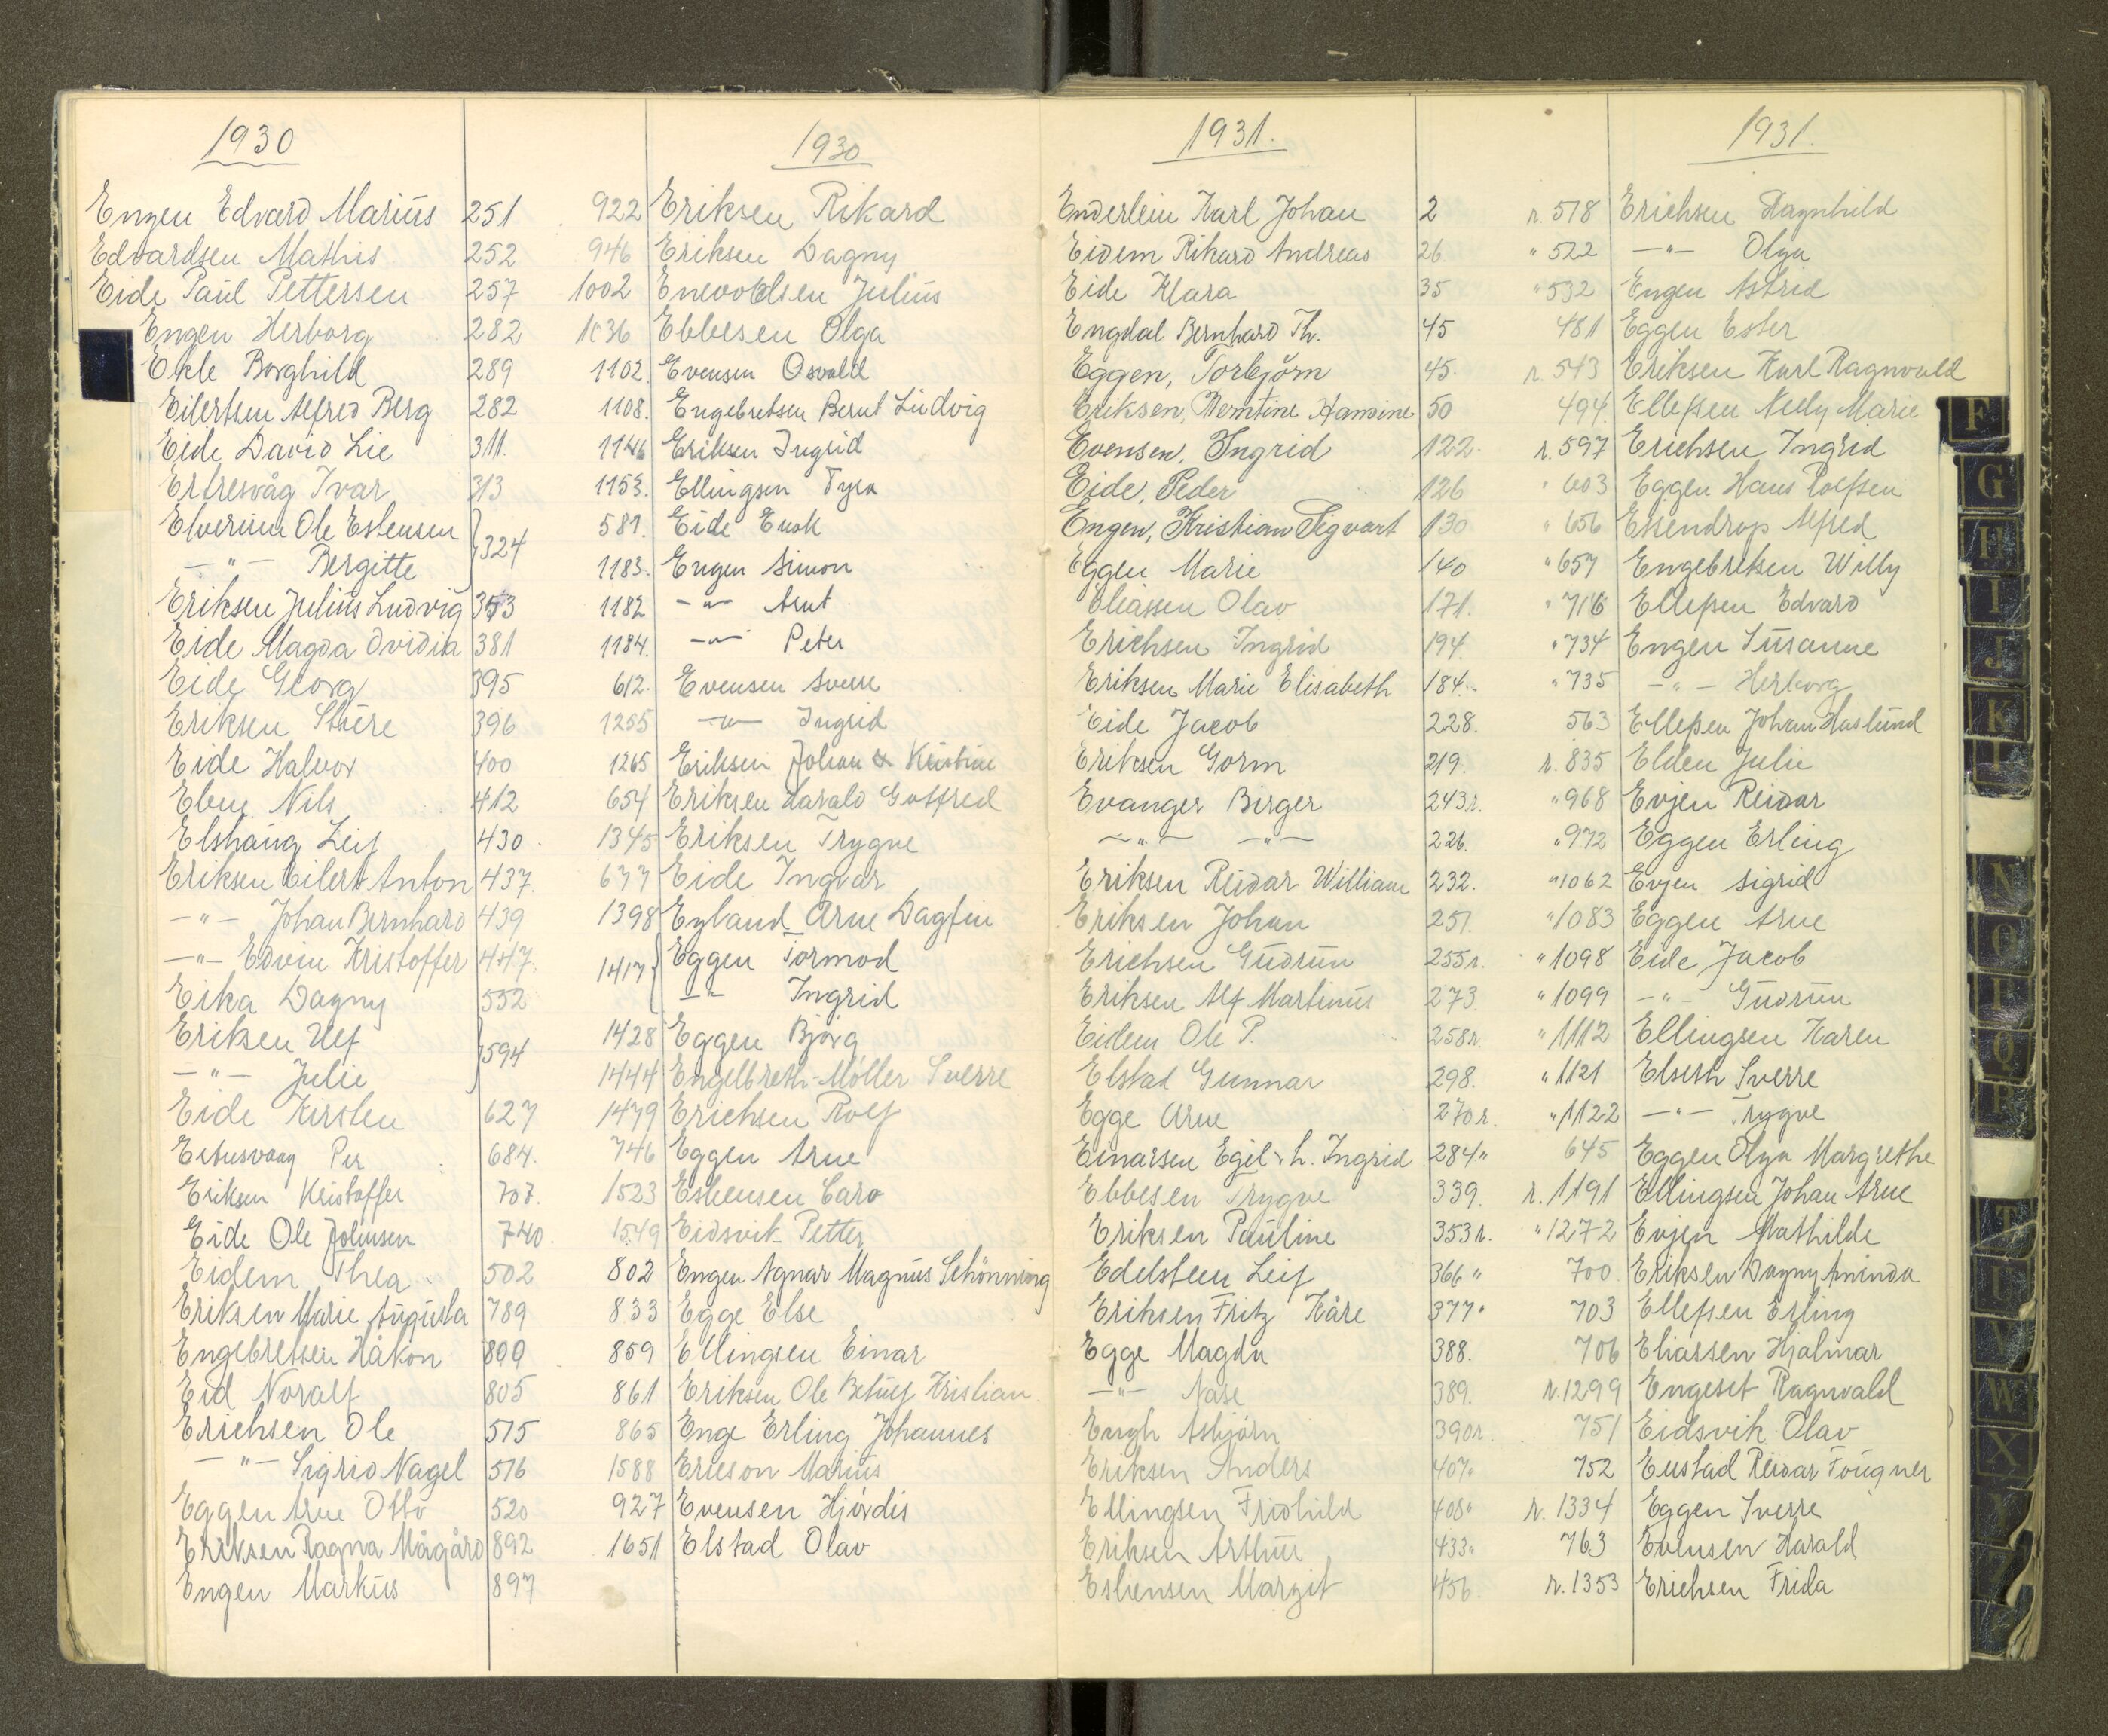 1930
Engen Edvard Marius 251
Edvardsen Mathis 252
Eide Paul Pettersen 257
Engen Herborg 282
Ekle Borghild 289
Eilertsen Alfred Berg 282
Eide David Lie 311.
Ertresvåg Ivar 313
Elverum Ole Estensen } 324
-"- Bergitte
Eriksen Julius Ludvig 353
Eide Magda Ovidia 381
Eide Georg 395
Eriksen Sture 396
Eide Halvor 400
Ebne Nils 412
Elshaug Leif 430
Eriksen Eilert Anton 437.
-"- Johan Bernhard 439
-"- Edvin Kristoffer 447.
Eika Dagny 552
Eriksen Ulf } 594
-"- Julie
Eide Kirsten 627
Per 684.
Eriksen Kristoffer 707.
Eide Ole Johnsen 740.
Eidem Thea 502
Eriksen Marie Augusta 789
Engebretsen Håkon 800
Eid Noralf 805
Erichsen Ole 515
-"- Sigrid Nagel 516
Eggen Arne Otto 520
Eriksen Ragna Mågård 892
Engen Markus 897
1930
922 Eriksen Rikard
946 Eriksen Dagny
1002 Enevoldsen Julius
1036 Ebbesen Olga
1102. Evensen Osvald
1108. Engebretsen Bernt Ludvig
1146 Eriksen Ingrid
1153. Ellingsen Tyra
581. Eide Enok
1183. Engen Simon
1182 -"- Arnt
1184. -"- Peter
612. Evensen Sverre
1255 -"- Ingrid
1265 Eriksen Johan & Kristine
654 Eriksen Harald Gotfred
1345 Eriksen Trygve
677 Eide Ingvar
1398 Eyland Arne Dagfin
1417 { Eggen Tormod
-"- Ingrid
1428 Eggen Bjørg
1444 Engelbreth-Møller Sverre
1479 Erichsen Rolf
746 Eggen Arne
1523 Estensen Caro
1549 Eidsvik Petter
802 Engen Agnar Magnus Schönning
833 Egge Else
859 Ellingsen Einar
861 Eriksen Ole Betuef Kristian
865 Enge Erling Johannes
1588 Ericson Marius
927 Evensen Hjördis
1651 Elstad Olav
1931.
Enderlein Karl Johan 2
Eidem Rikard Andreas 26
Eide Klara 35
Engdal Bernhard Th. 45
Eggen, Torbjörn 45.
Eriksen, Berntine Hansine 50
Evensen, Ingrid 122.
Eide, Peder 126
Engen, Kristian Sigvart 130
Eggen Marie 140
Eliassen Olav 171.
Erichsen Ingrid 194.
Eriksen Marie Elisabeth 184.
Eide Jacob 228.
Eriksen Gorm 219.
Evanger Birger 243 r.
-"- -"- 226.
Eriksen Reidar William 232.
Eriksen Johan 251.
Erichsen Gudrun 255 r.
Eriksen Alf Martinus 273.
Eidem Ole P. 258 r.
Elstad Gunnar 298.
Egge Arne 270 r.
Einarsen Egil h. Ingrid 284 "
Ebbesen Trygve 339.
Eriksen Pauline 353 r.
Edelsteen Leif 366 "
Eriksen Fritz Kåre 377 "
Egge Magda 388.
-"- Aase 389.
Engh Asbjörn 390 r.
Eriksen Anders 407 "
Ellingsen Fridhild 408 "
Eriksen Arthur 433 "
Estensen Margit 456.
1931.
r. 518 Erichsen Ragnhild
" 522 -"- Olga
" 532 Engen Astrid
481 Eggen Ester
r. 543 Eriksen Karl Ragnvald
494 Ellefsen Nelly Marie
r. 597 Erichsen Ingrid
" 603 Eggen Hans Roefsen
" 656 Essendrop Alfred
" 657 Engebretsen Willy
" 716 Ellefsen Edvard
" 734 Engen Susanne
" 735 -"- Herborg
563 Ellefsen Johan Haslund
r. 835 Elden Julie
" 968 Evjen Reidar
" 972 Eggen Erling
" 1062 Evjen Sigrid
" 1083 Eggen Arne
" 1098 Eide Jacob
" 1099 -"- Gudrun
" 1112 Ellingsen Karen
" 1121 Elseth Sverre
" 1122 -"- Trygve
645 Eggen Olga Margrethe
r. 1191 Ellingsen Johan Arne
" 1272 Evjen Mathilde
700 Eriksen Dagny Aminda
703 Ellefsen Erling
706 Eliassen Hjalmar
r. 1299 Engeset Ragnvald
751 Eidsvik Olav
752 Eustad Reidar Fougner
r. 1334 Eggen Sverre
763 Evensen Harald
r. 1353 Erichsen Frida
F
G
H
I
J
K
L
N
O
P
Q
R
T
U
V
W
X
Y
Z